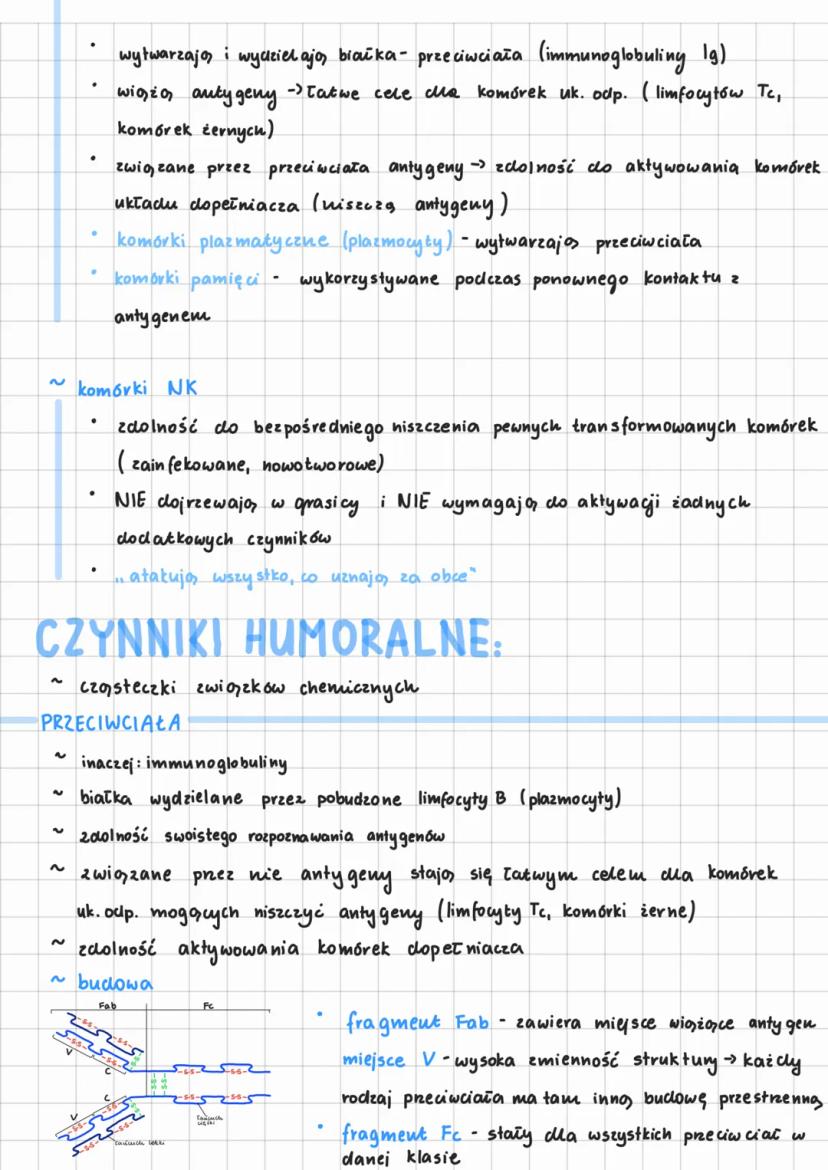 • wytwarzają i wydzielają białka- przeciwciała (immunoglobuliny Ig)
• wiążą antygeny -> łatwe cele dla komórek uk. odp. ( limfocytów Tc,
komórek żernych)
• związane przez przeciwciała antygeny -> zdolność do aktywowania komórek
układu dopełniacza (niszczą antygeny)
• komórki plazmatyczne (plazmocyty) - wytwarzają przeciwciała
• komórki pamięci - wykorzystywane podczas ponownego kontaktu z
antygenem
~ komórki NK
• zdolność do bezpośredniego niszczenia pewnych transformowanych komórek
( zainfekowane, nowotworowe)
• NIE dojrzewają w grasicy i NIE wymagają do aktywacji żadnych
dodatkowych czynników
• „atakują wszystko, co uznają za obce"
CZYNNIKI HUMORALNE:
~ cząsteczki związków chemicznych
PRZECIWCIAŁA
~ inaczej: immunoglobuliny
~ białka wydzielane przez pobudzone limfocyty B (plazmocyty)
~ zdolność swoistego rozpoznawania antygenów
~ związane przez nie antygeny stają się łatwym celem dla komórek
uk. odp. mogących niszczyć antygeny (limfocyty Tc, komórki żerne)
~ zdolność aktywowania komórek dopełniacza
~ budowa
Fab Fc
-S-S- -S-S- -S-S-
V
-S-S- -S-S-
C
-S-S- -S-S-
C
-S-S- -S-S-
V
łańcuch ciężki
łańcuch lekki
• fragment Fab - zawiera miejsce wiążące antygen
miejsce V - wysoka zmienność struktury -> każdy
rodzaj przeciwciała ma tam inną budowę przestrzenną
• fragment Fc - stały dla wszystkich przeciwciał w
danej klasie